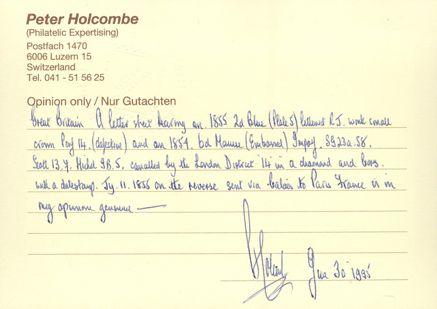 Peter Holcombe
(Philatelic Expertising)
Postfach 1470
6006 Luzern 15
Switzerland
Tel. 041 - 51 56 25
Opinion only / Nur Gutachten
Great Britain A letter sheet having an 1855 2d Blue (Plate 5) lettered R.J. wmk small
crown Perf 14. (defective) and an 1854 6d Mauve (Embossed) Imperf. SG23a.58.
Scott 13.7. Michel 9B.5, cancelled by the London District '14 in a diamond and bars
with a datestamp. Jy. 11. 1855 on the reverse sent via Calais to Paris France is in
my opinion genuine —
30 1995